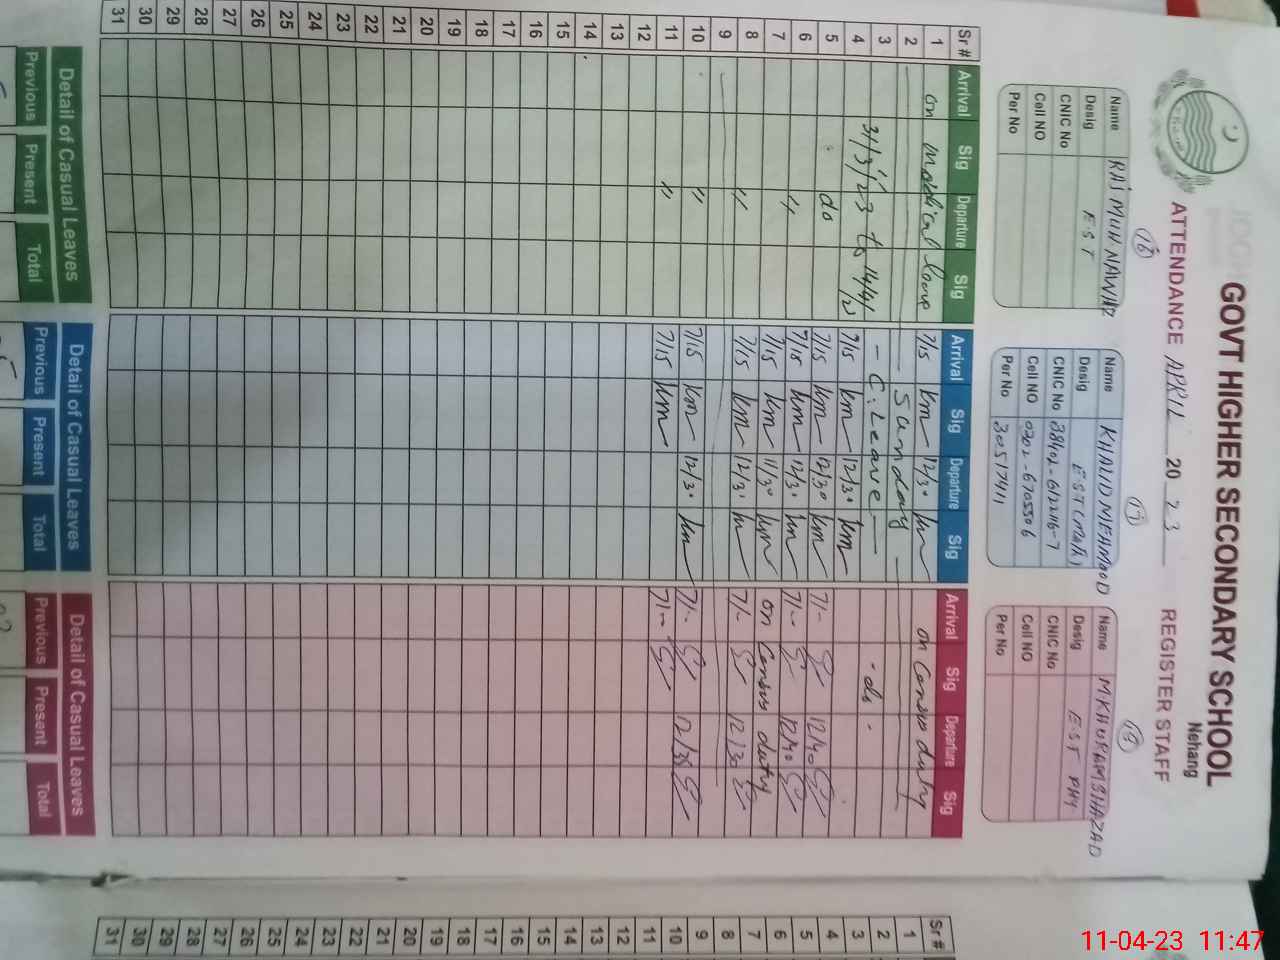 GOVT HIGHER SECONDARY SCHOOL
Nehang
ATTENDANCE APRIL 2023 REGISTER STAFF
(16) (17) (18)
Name RAI MUH NAWAZ
Desig E.S.T
CNIC No
Cell NO
Per No
Name KHALID MEHMOOD
Desig E.S.T (Math)
CNIC No
Cell NO 0302-6705506
Per No 30517411
Name M KHURAM SHAZAD
Desig E.S.T PHY
CNIC No
Cell NO
Per No
Sr # Arrival Sig Departure Sig Arrival Sig Departure Sig Arrival Sig Departure Sig
1 on medical leave 7/15 km 12/30 km on Census duty
2 Sunday
3 - C. Leave - - do -
4 31/3/23 to 14/4/23 7/15 km 12/30 km
5 do 7/15 km 12/30 km 7/- 12/40
6 " 7/15 km 12/30 km 7/- 12/40
7 7/15 km 11/30 km on Census duty
8 " 7/15 km 12/30 km 7/- 12/30
9
10 " 7/15 km 12/30 km 7/- 12/30
11 " 7/15 km 7/-
12
13
14
15
16
17
18
19
20
21
22
23
24
25
26
27
28
29
30
31
Detail of Casual Leaves Detail of Casual Leaves Detail of Casual Leaves
Previous Present Total Previous Present Total Previous Present Total
Sr #
1
2
3
4
5
6
7
8
9
10
11
12
13
14
15
16
17
18
19
20
21
22
23
24
25
26
27
28
29
30
31
11-04-23 11:47